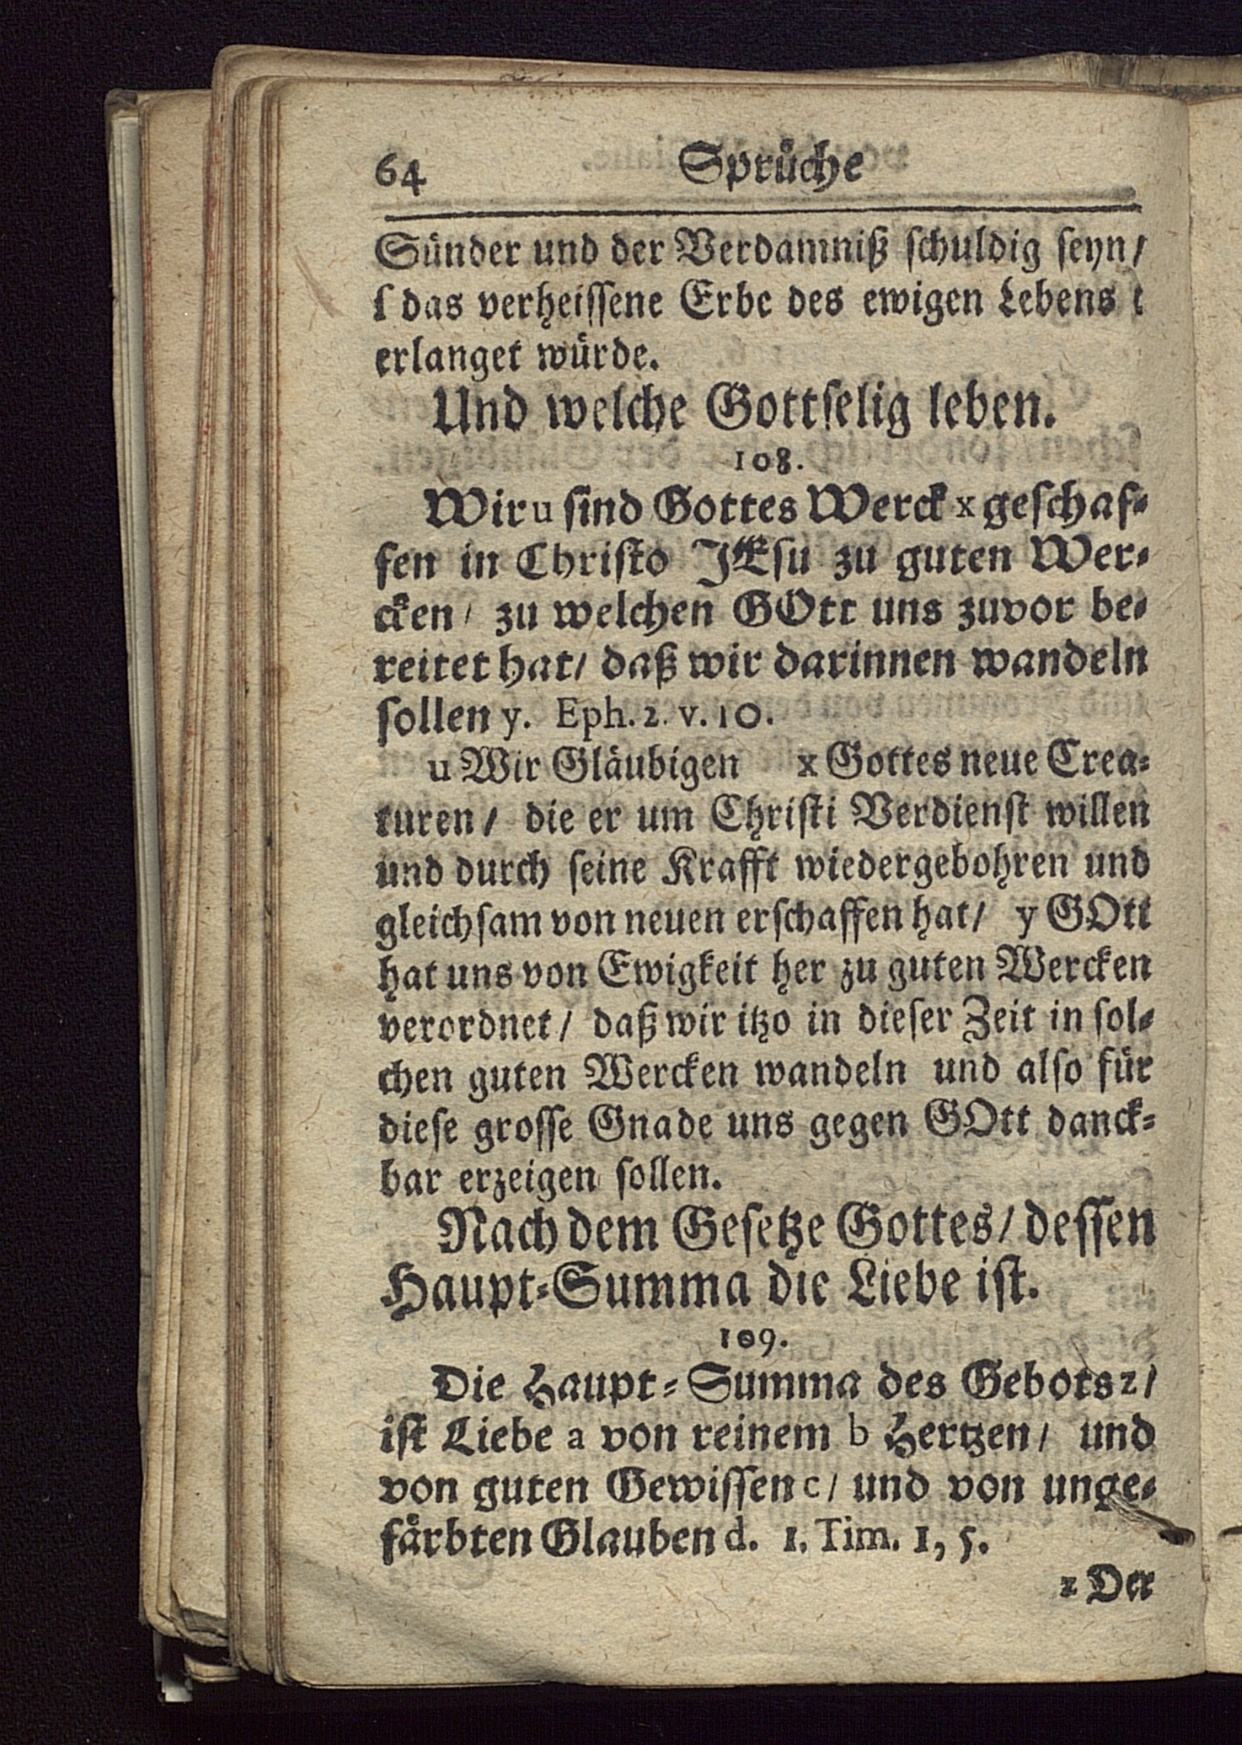 64 Sprüche
Sünder und der Verdamniß schuldig seyn/
ſ das verheissene Erbe des ewigen Lebens t
erlanget würde.
Und welche Gottselig leben.
108.
Wir u sind Gottes Werck x geschaf-
fen in Christo JEsu zu guten Wer-
cken/ zu welchen GOtt uns zuvor be-
reitet hat/ daß wir darinnen wandeln
sollen y. Eph. 2. v. 10.
u Wir Gläubigen x Gottes neue Crea-
turen/ die er um Christi Verdienst willen
und durch seine Krafft wiedergebohren und
gleichsam von neuen erschaffen hat/ y GOtt
hat uns von Ewigkeit her zu guten Wercken
verordnet/ daß wir itzo in dieser Zeit in sol-
chen guten Wercken wandeln und also für
diese grosse Gnade uns gegen GOtt danck-
bar erzeigen sollen.
Nach dem Gesetze Gottes/ dessen
Haupt-Summa die Liebe ist.
109.
Die Haupt-Summa des Gebots z/
ist Liebe a von reinem b Hertzen/ und
von guten Gewissen c/ und von unge-
färbten Glauben d. 1. Tim. 1, 5.
z Der